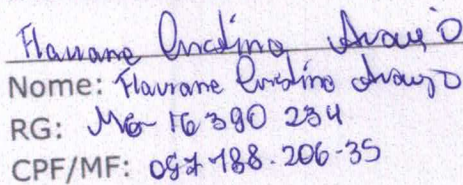 Flaviane Cristina Araujo
Nome: Flaviane Cristina Araujo
RG: MG-16 390 234
CPF/MF: 097 188.206-35